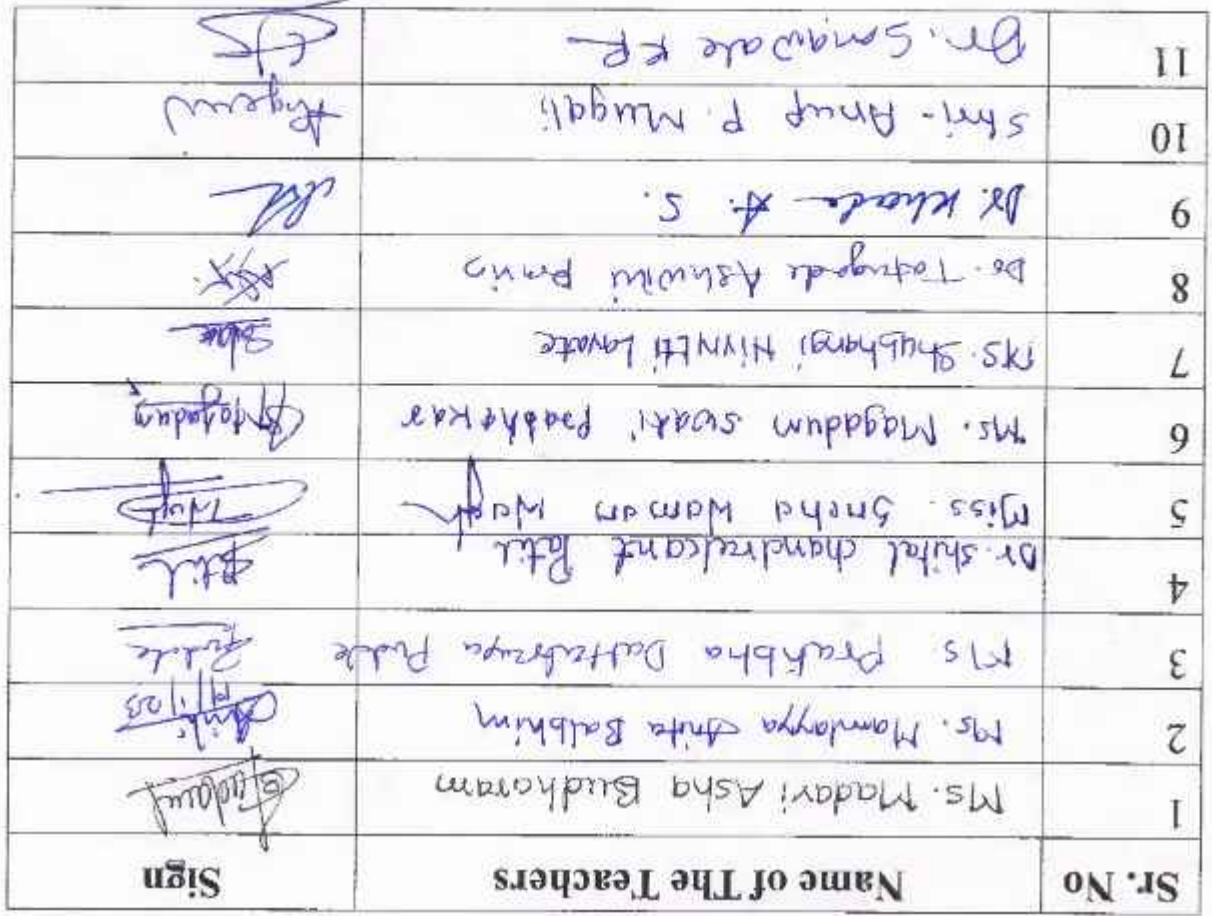 Sr. No Name of The Teachers Sign
1 Ms. Madavi Asha Budharam
2 Ms. Mamdayya Anita Balbhim
3 Ms Pratibha Dattatraya Pudale
4 Dr. Shital chandrakant Patil Patil
5 Miss. Sneha Waman Wagh Wagh
6 Ms. Magadum Swati Prabhakar Magadum
7 Ms. Shubhangi Nivrutti Lavate
8 Dr. Ashwini
9 Dr. Khade A. S.
10 Shri. Anup P. Mugali
11 Dr. Sonawale KR